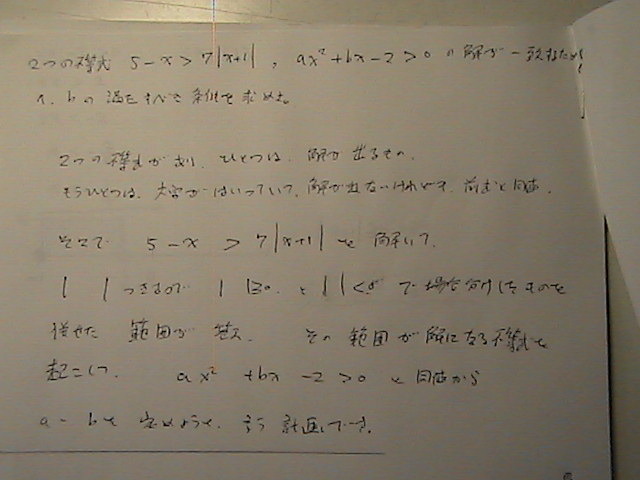 2つの不等式 5-x > 7|x+1| , ax²+bx-2>0 の解が一致するため
a, b の満たすべき条件を求めよ。
2つの不等式があり、ひとつは、解が出るもの。
もうひとつは、文字がはいっていて、解が出ないけれども、前式と同値。
そこで 5-x > 7|x+1| を解いて。
| | つきなので | |≧0. と | |<0 で場合分けしたものを
併せた 範囲が 答え. その 範囲が 解になる不等式を
起こして. ax² +bx -2 >0 と 同値から
a - b を 定めようと. 言う 計画です。